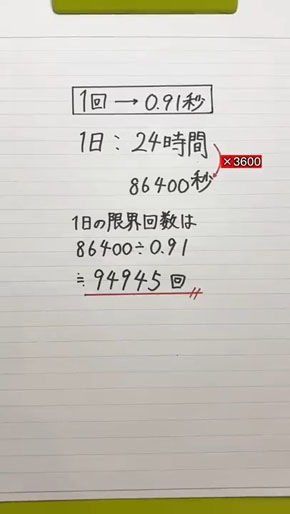 1回→0.91秒
1日:24時間
×3600
86400秒
1日の限界回数は
86400÷0.91
≒94945回